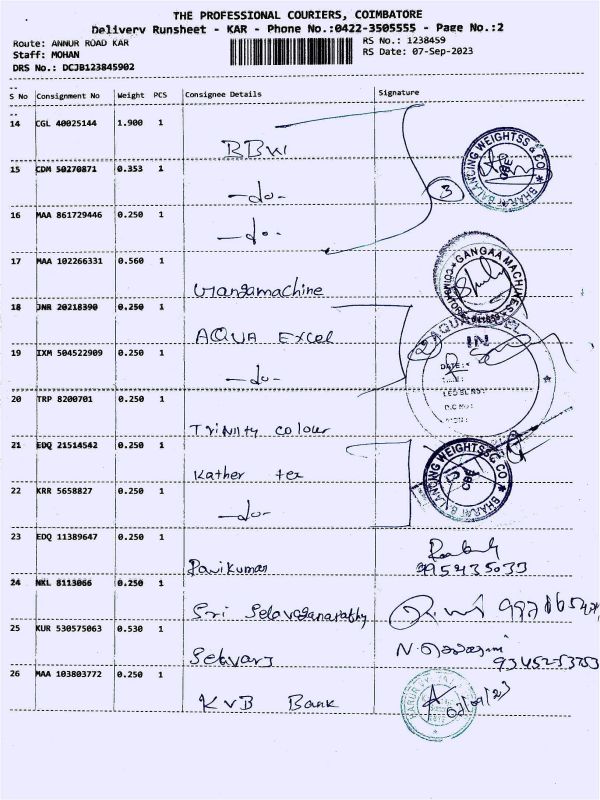 THE PROFESSIONAL COURIERS, COIMBATORE
Delivery Runsheet - KAR - Phone No.:0422-3505555 - Page No.:2
Route: ANNUR ROAD KAR
RS No.: 1238459
Staff: MOHAN
RS Date: 07-Sep-2023
DRS No.: DCJB123845902
S No Consignment No Weight PCS Consignee Details Signature
14 CGL 40025144 1.900 1
BBW
15 CDM 50270871 0.353 1
-do-
3
16 MAA 861729446 0.250 1
-do-
17 MAA 102266331 0.560 1
Gangamachine
18 JNR 20218390 0.250 1
AQUA Excel
19 IXM 504522909 0.250 1
-do-
20 TRP 8200701 0.250 1
Trinity colour
21 EDQ 21514542 0.250 1
Kather tex
22 KRR 5658827 0.250 1
-do-
23 EDQ 11389647 0.250 1
Ravikumar
24 NKL 8113066 0.250 1
Sri Selvaganapathy
25 KUR 530575063 0.530 1
Selvaraj
26 MAA 103803772 0.250 1
KVB Bank
BHARAT BALANCING WEIGHTSS & CO
CBE
GANGAA MACHINES
IN
DATE:
BHARAT BALANCING WEIGHTSS & CO
CBE
07/09/23